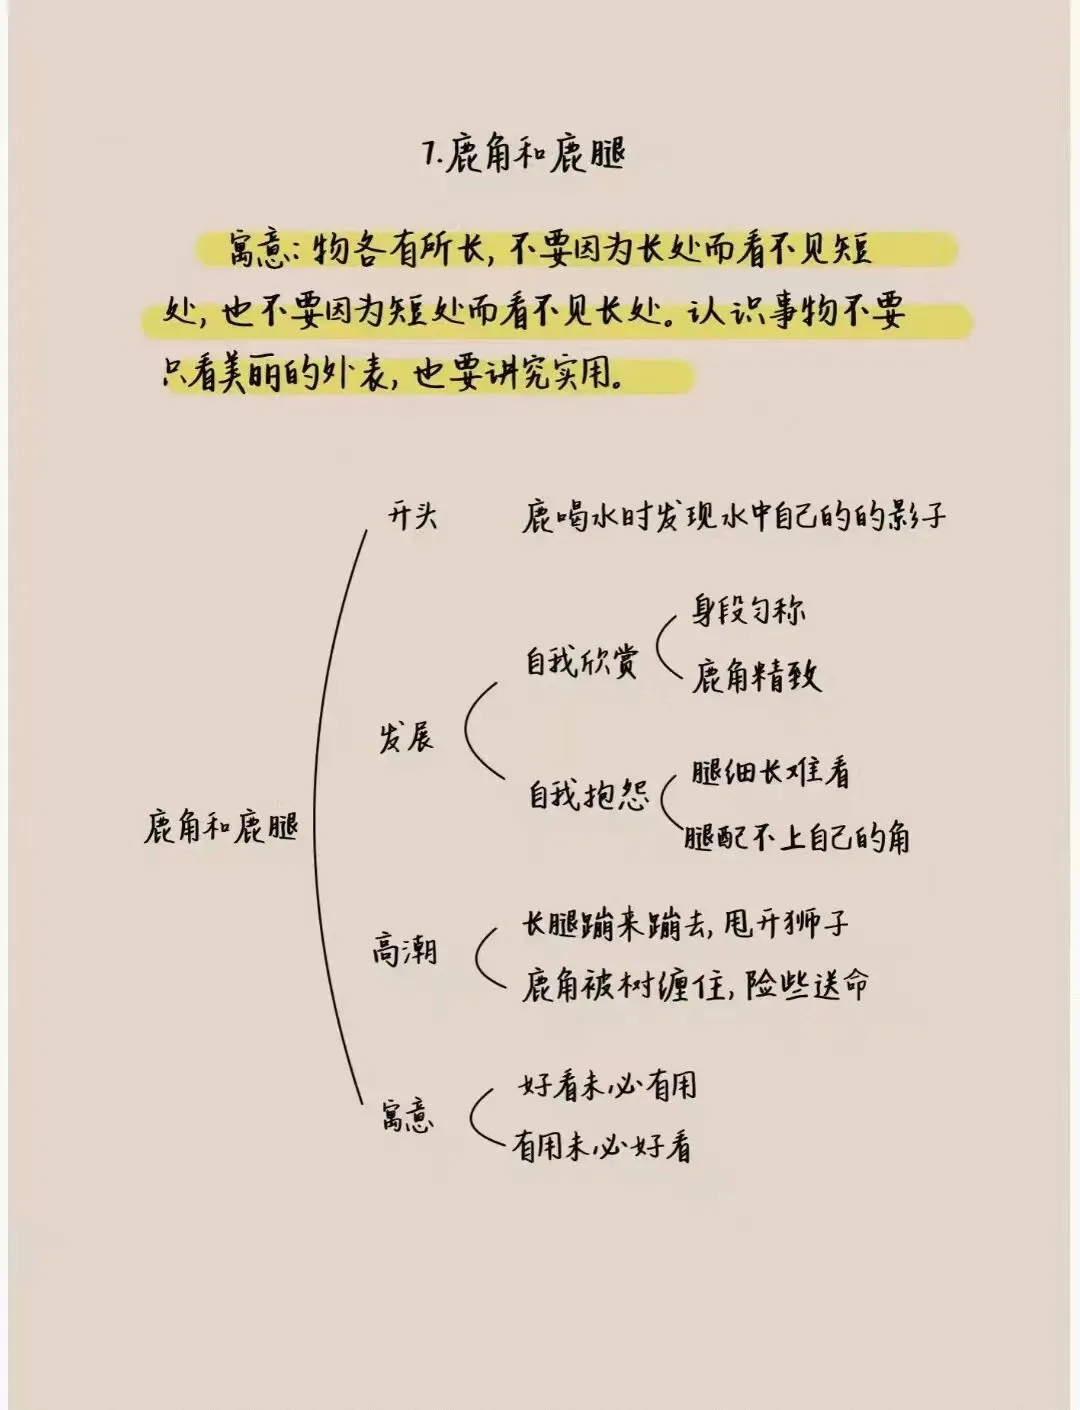 7.鹿角和鹿腿
寓意:物各有所长,不要因为长处而看不见短
处,也不要因为短处而看不见长处。认识事物不要
只看美丽的外表,也要讲究实用。
开头
鹿喝水时发现水中自己的的影子
身段匀称
自我欣赏
鹿角精致
发展
腿细长难看
自我抱怨
腿配不上自己的角
鹿角和鹿腿
长腿蹦来蹦去,甩开狮子
高潮
鹿角被树缠住,险些送命
好看未必有用
寓意
有用未必好看